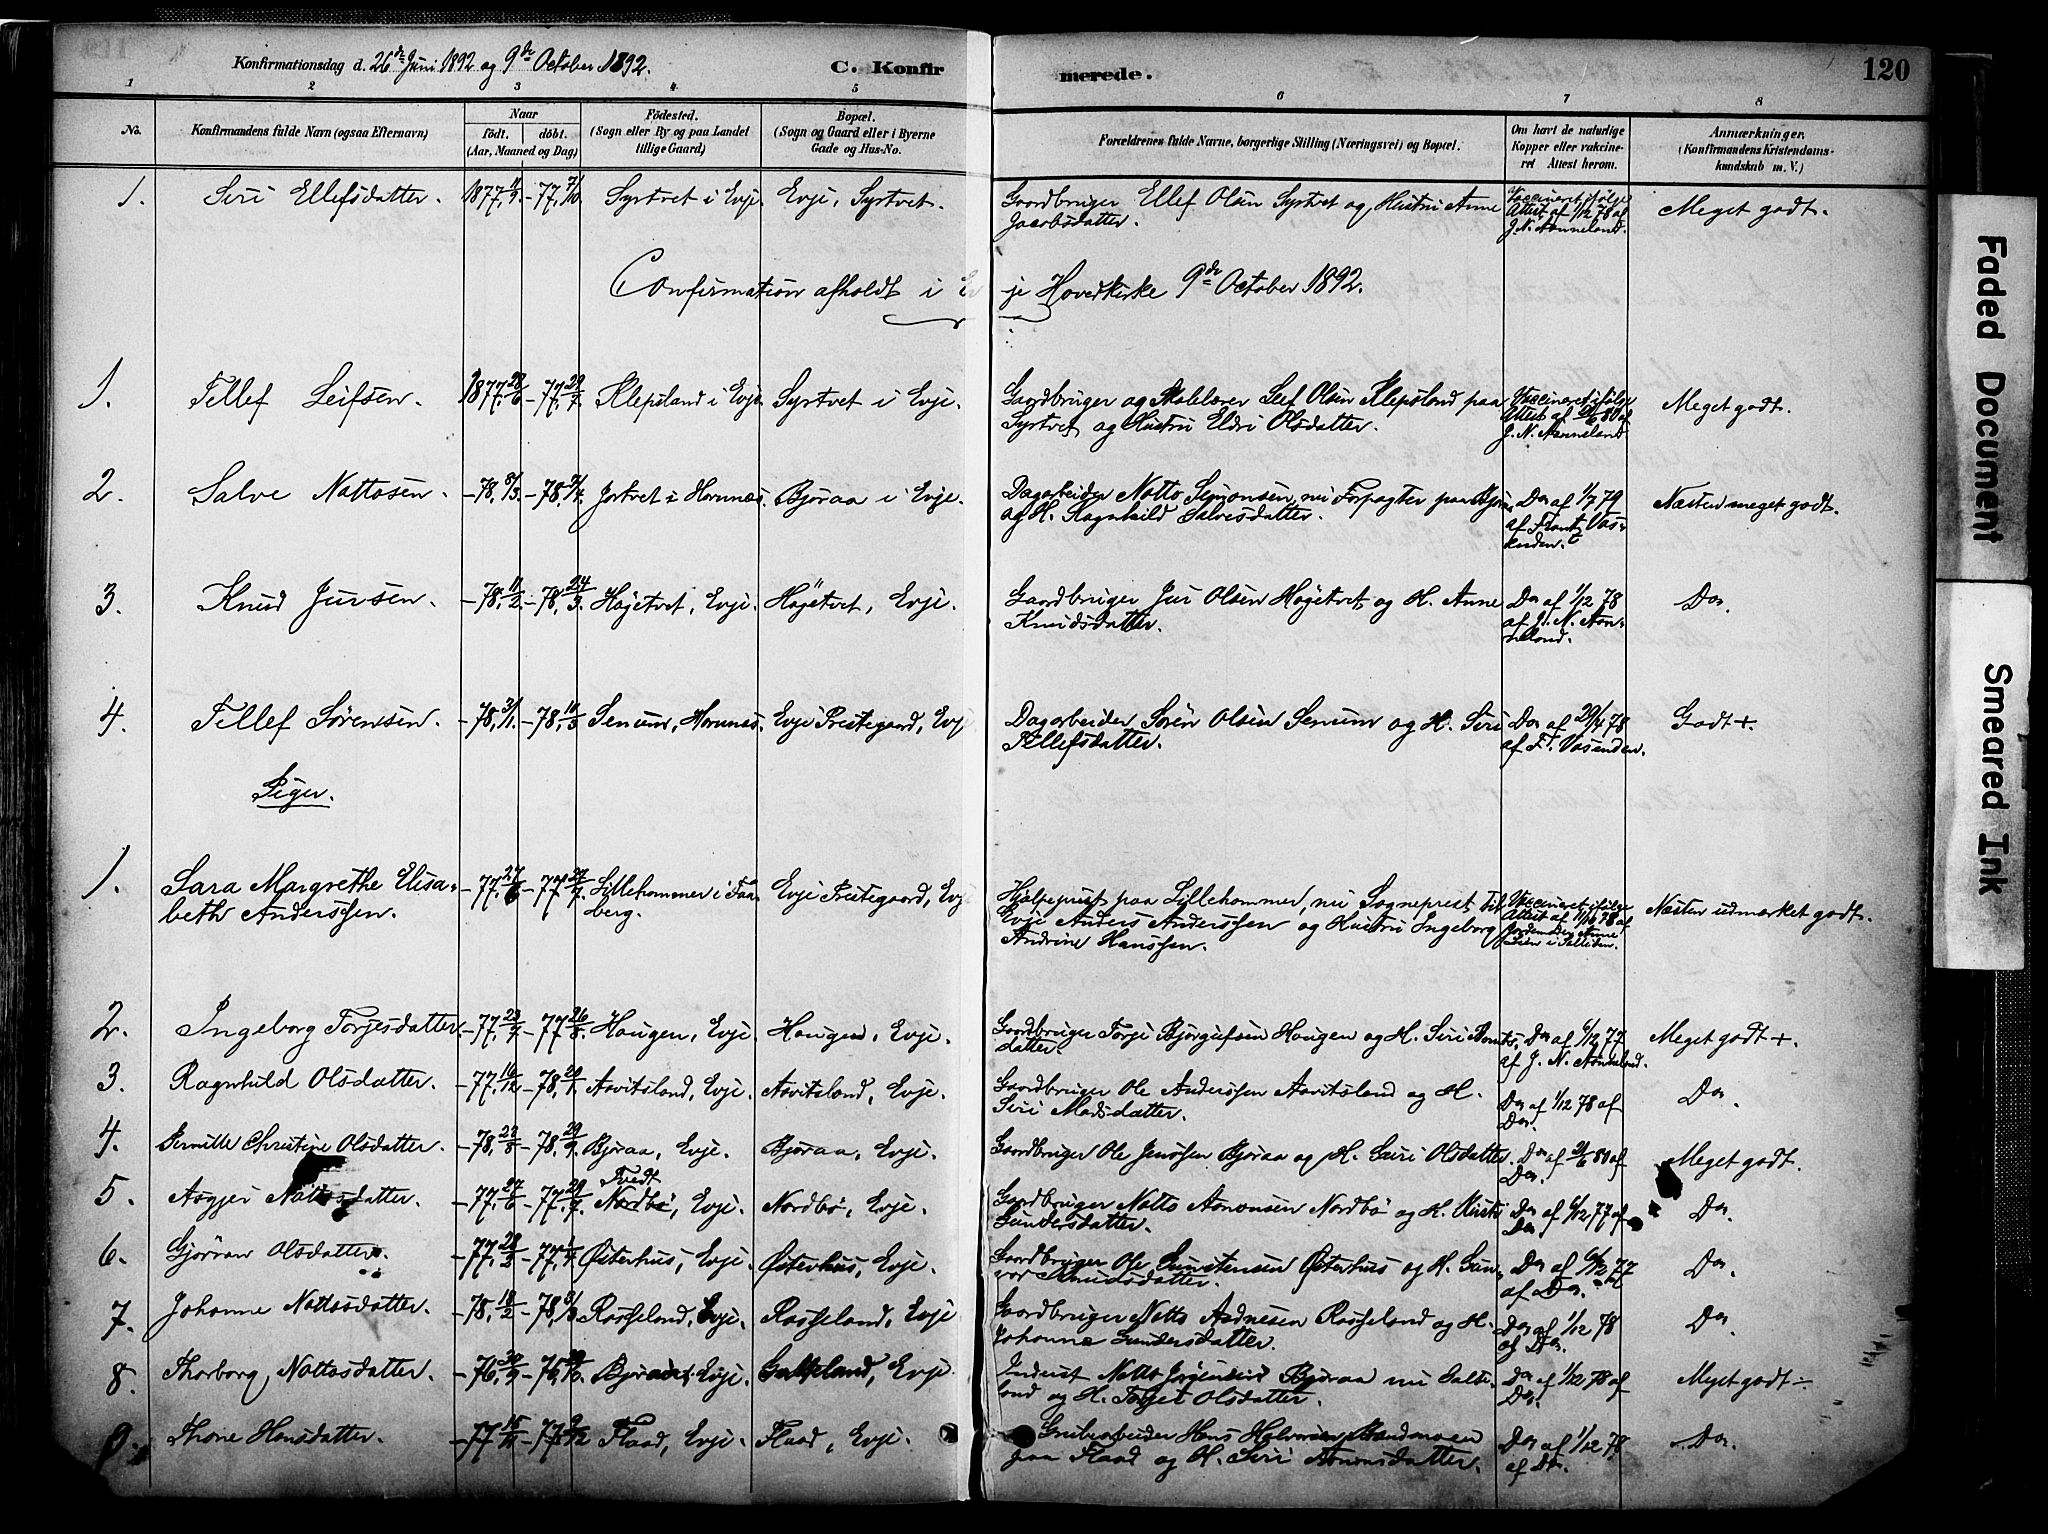 Konfirmationsdag d. 26de Juni 1892 og 9de October 1892.
C. Konfirmerede.
120
1 2 3 4 5 6 7 8
No.
Konfirmandens fulde Navn (ogsaa Efternavn)
Naar
født. døbt.
(Aar, Maaned og Dag)
Fødested.
(Sogn eller By og paa Landet
tillige Gaard)
Bopæl.
(Sogn og Gaard eller i Byerne
Gade og Hus-No.
Forældrenes fulde Navne, borgerlige Stilling (Næringsvei) og Bopæl.
Om havt de naturlige
Kopper eller vakcine-
ret Attest herom.
Anmærkninger.
(Konfirmandens Kristendoms-
kundskab m. V.)
1. Siri Ellefsdatter. 1877, - 77, 7/10. Syrtvet i Evje. Evje, Syrtvet. Gaardbruger Ellef Olsen Syrtvet og Hustru Anne
Jacobsdatter.
Vaccineret ifølge
Attest af 1/12 78 af
J. N. Aanneland.
Meget godt.
Confirmation afholdt i Evje Hovedkirke 9de October 1892.
1. Tellef Leifsen. 1877, 28/6 - 77, 29/7. Klepsland i Evje. Syrtvet i Evje. Gaardbruger og Skolelærer Leif Olsen Klepsland paa
Syrtvet og Hustru Eldri Olsdatter.
Vaccineret ifølge
Attest af 80 af
J. N. Aanneland
Meget godt.
2. Salve Nottosen. - 78, 8/3. - 78, Jortvet i Hornnes. Bjøraa i Evje. Dagarbeider Notto Simonsen, nu Forpagter paa Bjøraa
og H. Ragnhild Salvesdatter.
Do af 1/7 79
af Flont Vas-
enden.
Næsten meget godt.
3. Knud Jursen. - 78, 11/2 - 78, 24/3. Høgetvet, Evje. Høgetvet, Evje. Gaardbruger Jur Olsen Høgetvet og H. Anne
Knudsdatter.
Do af 1/12 78
af J. N. Aan-
neland.
Do.
4. Tellef Sørensen. - 78, 3/1. - 78, 10/3 Senum, Hornnes. Evje Prestegaard, Evje Dagarbeider Søren Olsen Senum og H. Siri
Tellefsdatter.
Do af 29/4 78
af F. Vasenden.
Godt +.
Piger.
1. Sara Margrethe Elisa-
beth Anderssen.
- 77, 27/6 - 77, 22/7. Lillehammer i Faa-
berg.
Evje Prestegaard, Evje
Hjælpeprest paa Lillehammer, nu Sogneprest til
Evje Anders Anderssen og Hustru Ingeborg
Andrine Hanssen.
Vaccineret ifølge
Attest af 11/10 78 af
Jordemoder Anne
Næsten udmærket godt.
2. Ingeborg Torjesdatter - 77, 23/7 - 77, 26/8. Haugen, Evje. Haugen, Evje. Gaardbruger Torje Bjørgufsen Haugen og H. Siri
datter.
Do af 6/12 77
af J. N. Aanneland.
Meget godt +.
3. Ragnhild Olsdatter. - 77, 16/12 - 78, 20/1. Aavitsland, Evje. Aavitsland, Evje. Gaardbruger Ole Anderssen Aavitsland og H.
Siri Madsdatter.
Do af 1/12 78 af
Do.
Do.
4. Pernille Christine Olsdatter. - 78, 22/8 - 78, 29/9. Bjøraa, Evje. Bjøraa, Evje. Gaardbruger Ole Jensen Bjøraa og H. Guri Olsdatter.
Do af 80 af
Do.
Meget godt.
5. Asgjer Nottosdatter. - 77, 27/6 - 77, 29/7. Tvedt
Nordbø, Evje. Nordbø, Evje. Gaardbruger Notto Aanonsen Nordbø og H. Kirsti
Gundersdatter.
Do af 6/12 77 af
Do
Do.
6. Gjøran Olsdatter. - 77, 28/2 - 77, 1/4. Østerhus, Evje. Østerhus, Evje. Gaardbruger Ole Gunstensen Østerhus og H. Gun-
vor Knudsdatter.
Do af 6/12 77
af Do.
Do.
7. Johanne Nottosdatter. - 78, 18/2 - 78, Rosseland, Evje. Rosseland, Evje Gaardbruger Notto Aadnesen Rosseland og H.
Johanne Gundersdatter.
Do af 1/12 78
af Do.
Do.
8. Thorborg Nottosdatter. - 76, 20/9 - 76, Bjøraa, Evje. Galteland, Evje. Inderst Notto Jørgensen Bjøraa nu Galte-
land og H. Torjer Olsdatter.
Do af 1/12 78 af
Do.
Meget godt ÷
9. Thone Hansdatter. - 77, 15/11 - 77, 9/12 Flaad, Evje. Flaad, Evje. Grubearbeider Hans Halvorsen Sandmoen
paa Flaad og H. Siri Aanonsdatter.
Do af 1/12 78
af Do.
Do.
Faded Document
Smeared Ink